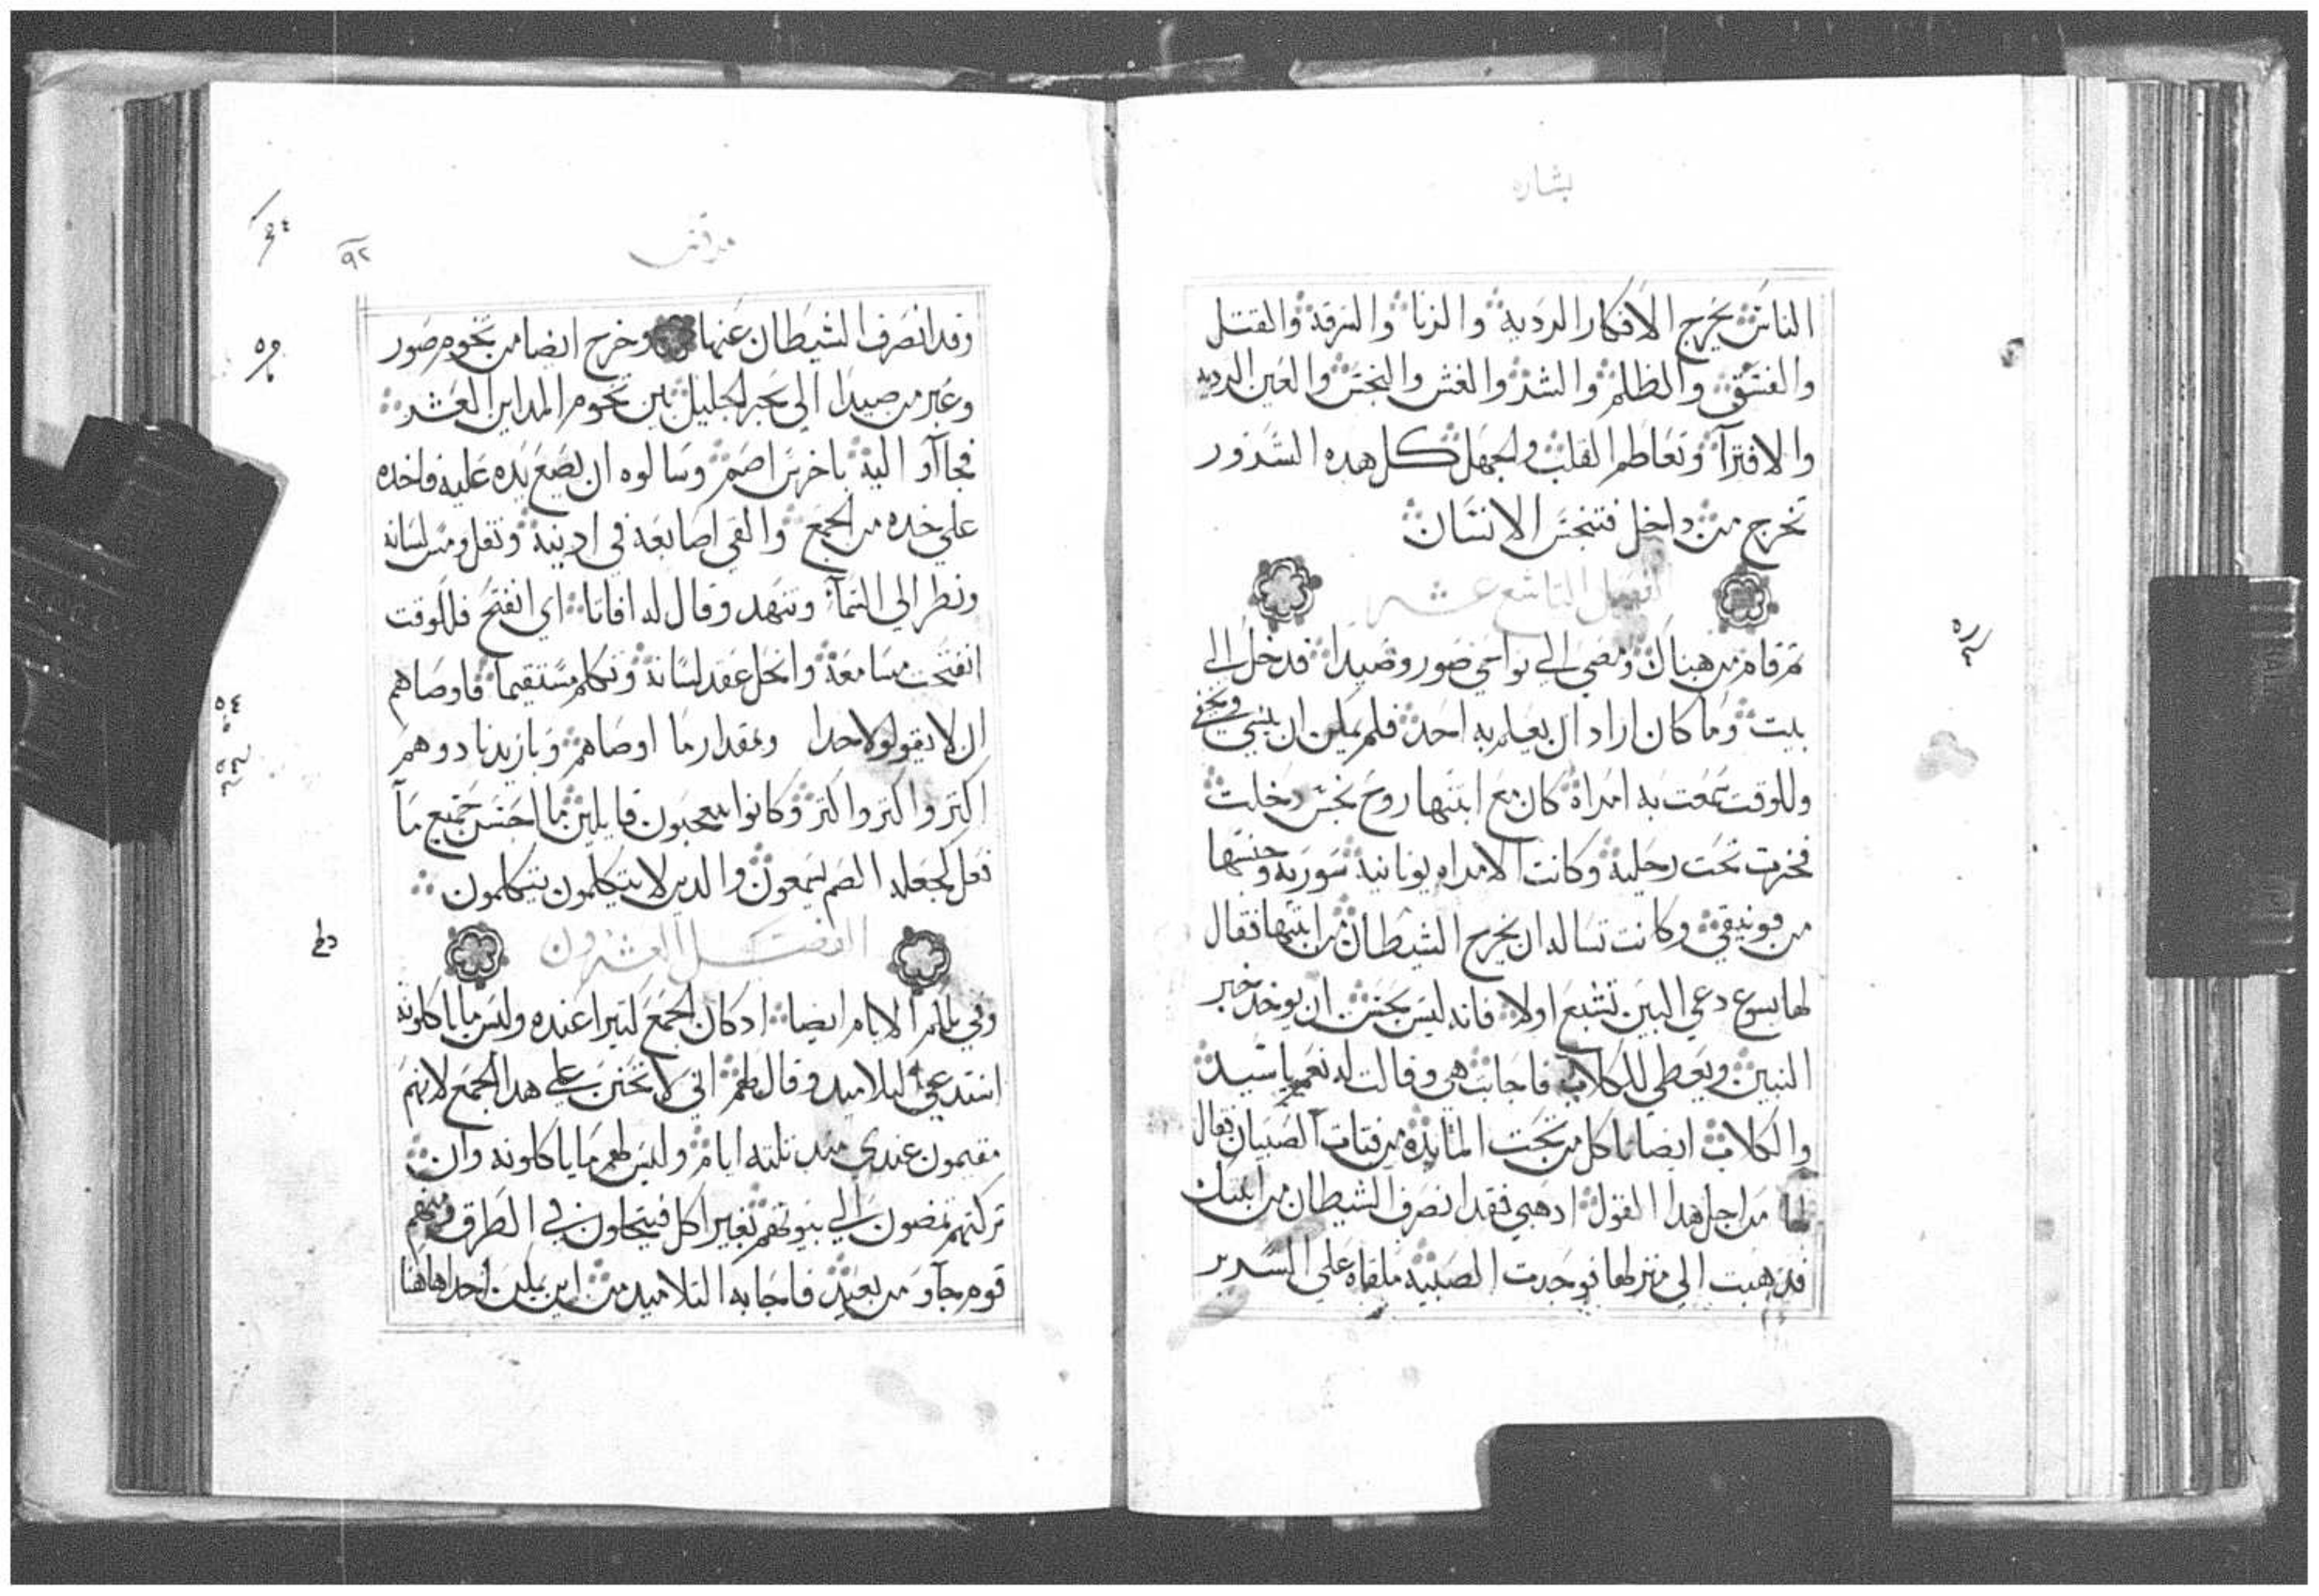 بشاره
الناس يخرج الافكار الرديه والزنا والسرقه والقتل
والفسق والظلم والشر والغش والنجس والعين الرديه
والافترآ وتعاظم القلب والجهل كل هده الشرور
تخرج من داخل فتنجس الانسان
الفصل التاسع عشر
ثم قام من هناك ومضي الي نواحي صور وصيدا فدخل الي
بيت وما كان اراد ان يعلم به احد فلم يمكن ان ينسي ويخفي
وللوقت سمعت به امراه كان مع ابنتها روح نجس دخلت
فخرت تحت رجليه وكانت الامراه يونانيه سوريه وجنسها
من فونيقي وكانت تساله ان يخرج الشيطان من ابنتها فقال
لها يسوع دعي البنين تشبع اولا فانه ليس بحسن ان يوخد خبز
البنين ويعطي للكلاب فاجابت هي وقالت له نعم يا سيد
والكلاب ايضا تاكل من تحت المايده من فتات الصبيان فقال
لها من اجل هدا القول ادهبي فقد انصرف الشيطان من ابنتك
فدهبت الي منزلها فوجدت الصبيه ملقاه علي السرير
مرقس
٩٢
وقد انصرف الشيطان عنها وخرج ايضا من تخوم صور
وعبر من صيدا الي بحر الجليل بين تخوم المداين العشر
فجاآو اليه باخرس اصم وسالوه ان يضع يده عليه فاخده
علي خده من الجمع والقي اصابعه في ادنيه وتفل ومس لسانه
ونظر الي السمآ وتنهد وقال له افاتا اي انفتح فللوقت
انفتحت مسامعه وانحل عقد لسانه وتكلم مستقيما فاوصاهم
ان لا يقولو لاحدا وبمقدار ما اوصاهم وبازيدنا دو هم
اكتر واكتر واكتر وكانوا يتعجبون قايلين ما احسن جميع مآ
فعل لجعله الصم يسمعون والدين لا يتكلمون يتكلمون
الفصل العشرون
وفي تلك الايام ايضا اد كان الجمع كتيرا عنده وليس ما ياكلونه
استدعي تلاميد وقال لهم اني لا تحنن علي هدا الجمع لانهم
مقيمون عندي مند تلته ايام وليس لهم ما ياكلونه وان
تركتهم يمضون الي بيوتهم بغير اكل فيتحلون في الطرق ومنهم
قوم جآو من بعيد فاجابه التلاميد من اين يمكن احدا هاهنا